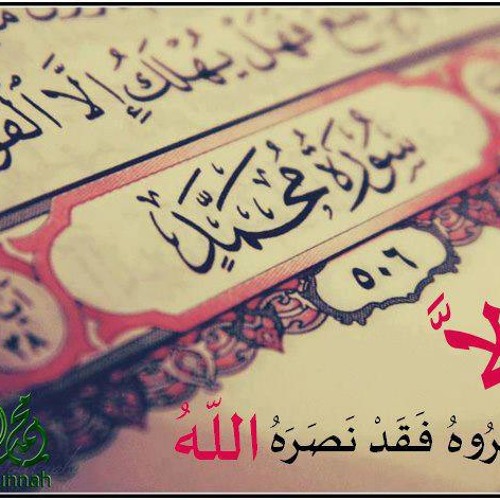 فَهَلْ يُهْلَكُ إِلَّا ٱلْقَوْ
سُورَةُ مُحَمَّدٍ
٥٠٦
لاَّ
رُوهُ فَقَدْ نَصَرَهُ اللّٰهُ
محمد
unnah